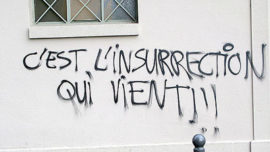 C'EST L'INSURRECTION
QUi ViENT!!!